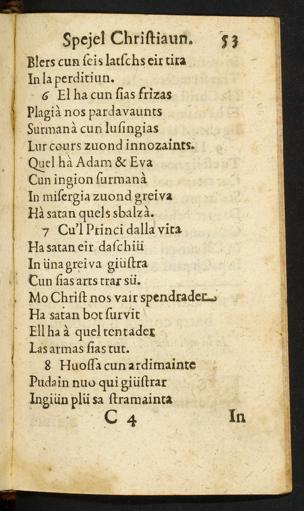 Spejel Chriſtiaun. 53
Blers cun ſeis latſchs eir tira
In la perditiun.
6 El ha cun ſias frizas
Plagià nos pardavaunts
Surmanà cun luſingias
Lur cours zuond innozaints.
Quel hà Adam & Eva
Cun ingion ſurmanà
In miſergia zuond greiva
Hà satan quels sbalzà.
7 Cu'l Princi dalla vita
Ha satan eir daſchiü
In üna greiva giüſtra
Cun ſias arts trar sü.
Mo Chriſt nos vair spendrader
Ha satan bot ſurvit
Ell ha à quel tentader
Las armas ſias tut.
8 Huoſſa cun ardimainte
Pudain nuo qui giüſtrar
Ingiün plü sa ſtramainta
C 4 In